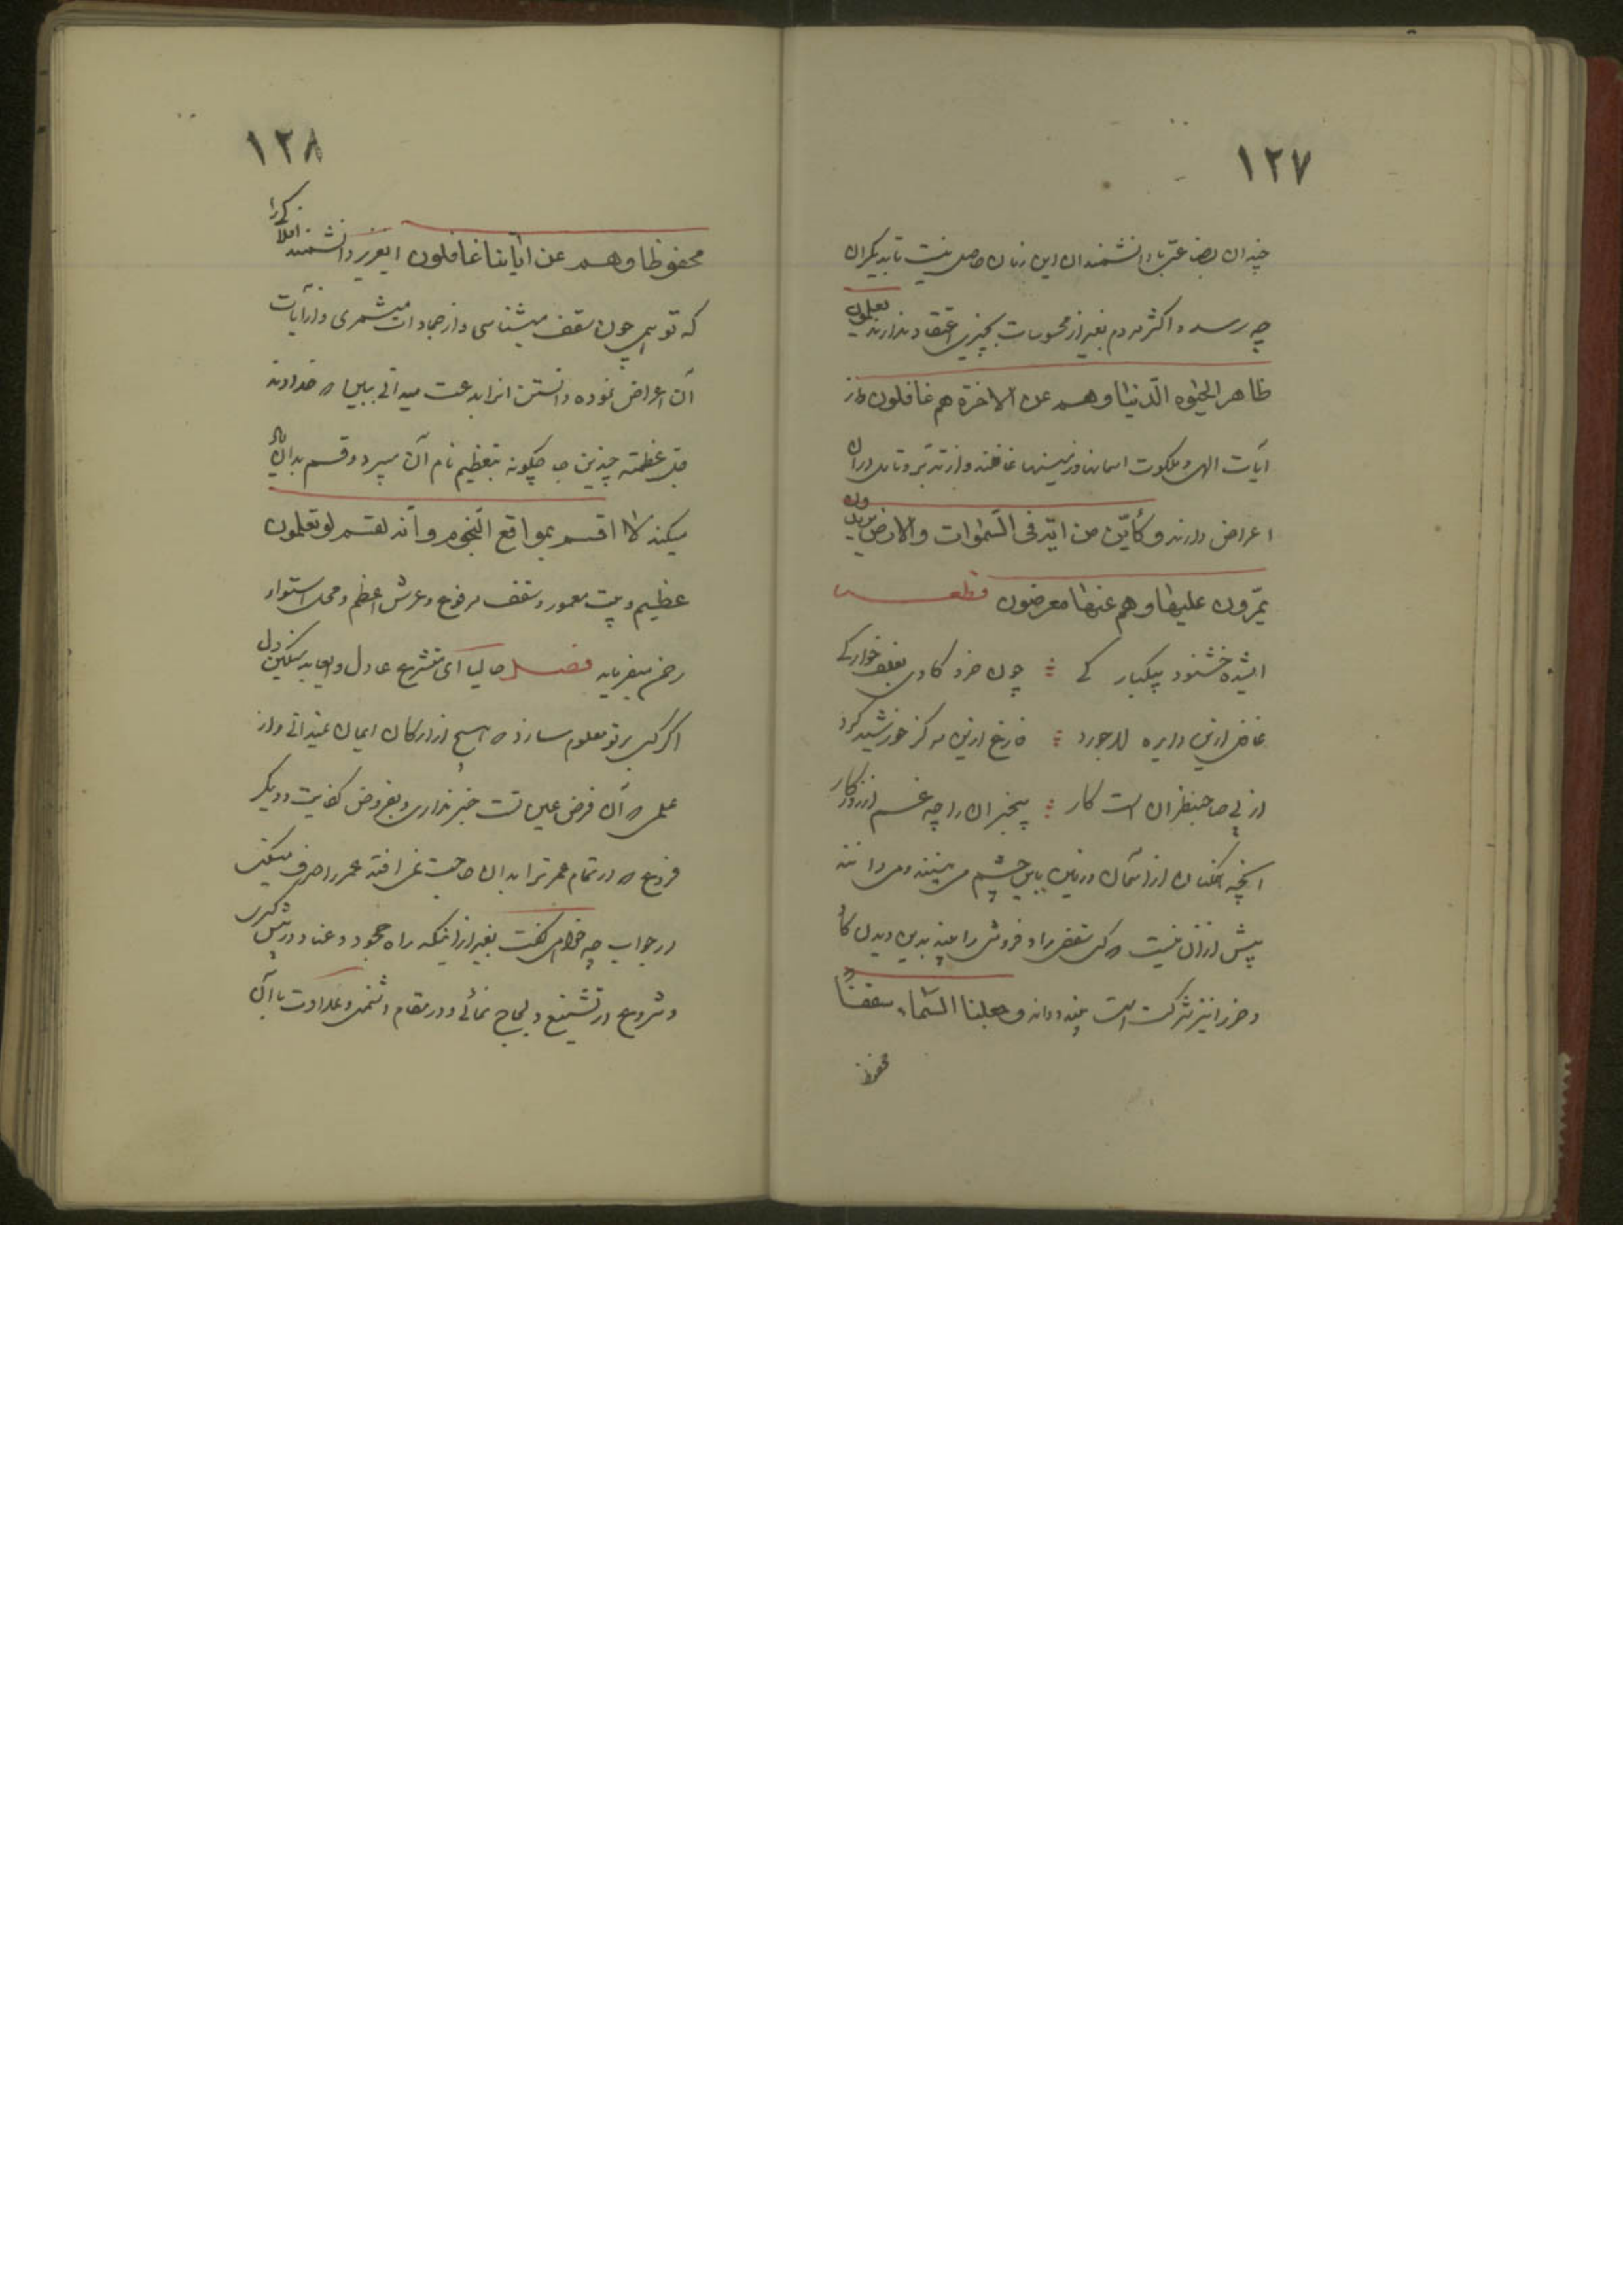 ۱۲۷
چندان بضاعتی با دانشمندان این زمان حاصل نیست تا بدیگران
چه رسد و اکثر مردم بغیر از محسوسات بچیزی اعتقاد ندارند یعلمون
ظاهرا الحیوه الدنیا و هم عن الاخرة هم غافلون و از
آیات الهی و ملکوت اسمانها و زمینها غافلند و از تدبر و تامل در آن
اعراض دارند و کأیّن من ایة فی السّموات و الارض
یمرّون علیها و هم عنها معرضون قطعه
خشنود بیکبار کے چون خر و گاوی بعلف خوار کے
غافل ازین دایره لاجورد فارغ ازین مرکز خورشید گرد
از پی صاحبنظران است کار بیخبران را چه غم از روزگار
آنچه همگنان از آسمان و زمین باین چشم می بینند و می دانند
بیش از آن نیست که سقفی را و فروشی را بیند بدین دیدن گاو
و خر را نیز شرکت است بیند و داند و جعلنا السّماء سقفاً
محفوظا
۱۲۸
محفوظا و هم عن ایاتنا غافلون ایعزیز دانشمند افلاکی را
که تو همی چون سقف میشناسی و از جمادات میشمری و از آیات
آن اعراض نموده دانستن انرا بدعت میدانی ببین که خداوند
جل عظمته چندین جا چگونه بتعظیم نام آن میبرد و قسم بدان یاد
میکند فلا اقسم بمواقع النّجوم و انّه لقسم لو تعلمون
عظیم و بیت معمور و سقف مرفوع و عرش اعظم و محل استواء
رحمن میفرماید فصل حالیا ای متشرع عادل و ایعابد سنگین دل
اگر کسی بر تو معلوم سازد که هیچ از ارکان ایمان نمیدانی و از
علمی که آن فرض عین تست خبر نداری و بفروض کفایت و دیگر
فروع که در تمام عمر ترا بدان حاجت نمی افتد عمر را صرف میکنی
در جواب چه خواهی گفت بغیر از اینکه راه جحود و عناد در پیش گیری
و شروع در تشنیع و لجاج نمائی و در مقام دشمنی و عداوت با آن